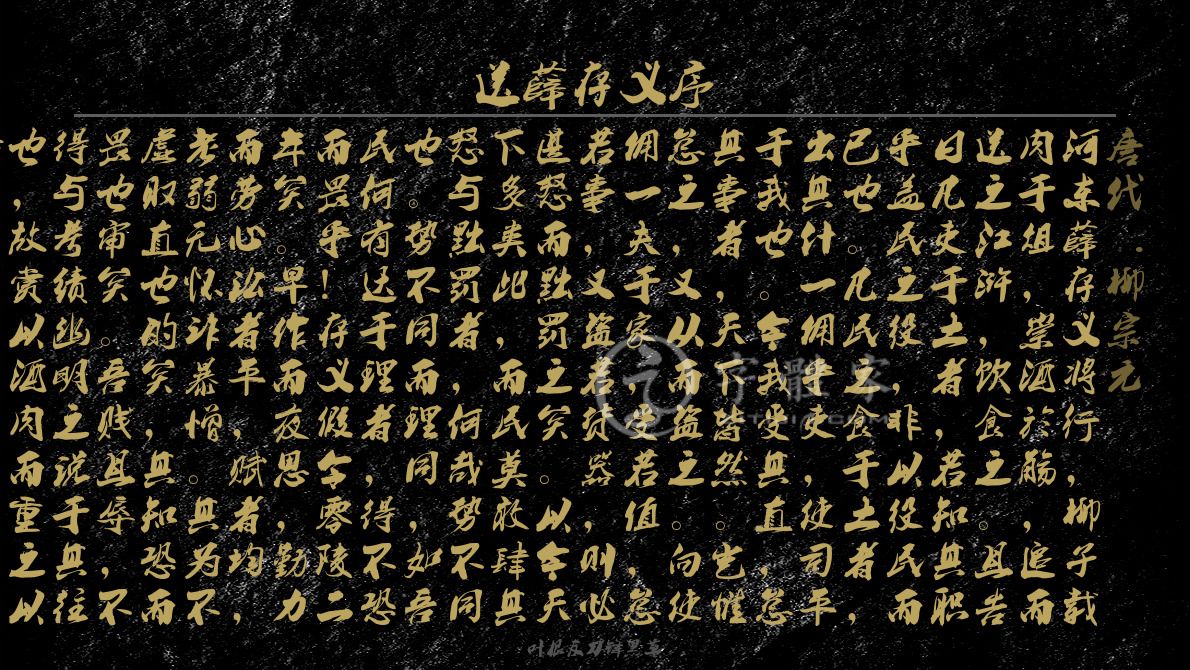 送薛存义序
唐代·柳宗元
河东薛存义将行,柳子载
肉于俎,崇酒於觞,追而
送之江浒,饮食之。且告
曰凡吏于土者,若知其职
乎盖民之役,非以役民而
已也。凡民之食于土者,
出其什一佣乎吏,使司平
于我也。今我受其直,怠
其事者,天下皆然。岂惟
怠之,又从而盗之。向使
佣一夫于家,受若值,怠
若事,又盗若货器,则必
甚怒而黜罚之矣。以今天
下多类此,而民莫敢肆其
怒与黜罚者,何哉势不同
也。势不同而理同,如吾
民何有达于理者,得不恐
而畏乎!存义假令零陵二
年矣。早作而夜思,勤力
而劳心。讼者平,赋者均,
老弱无怀诈暴憎。其为不
虚取直也的矣,其知恐而
畏也审矣。吾贱且辱,不
得与考绩幽明之说于其往
也,故赏以酒肉而重之以
字體家